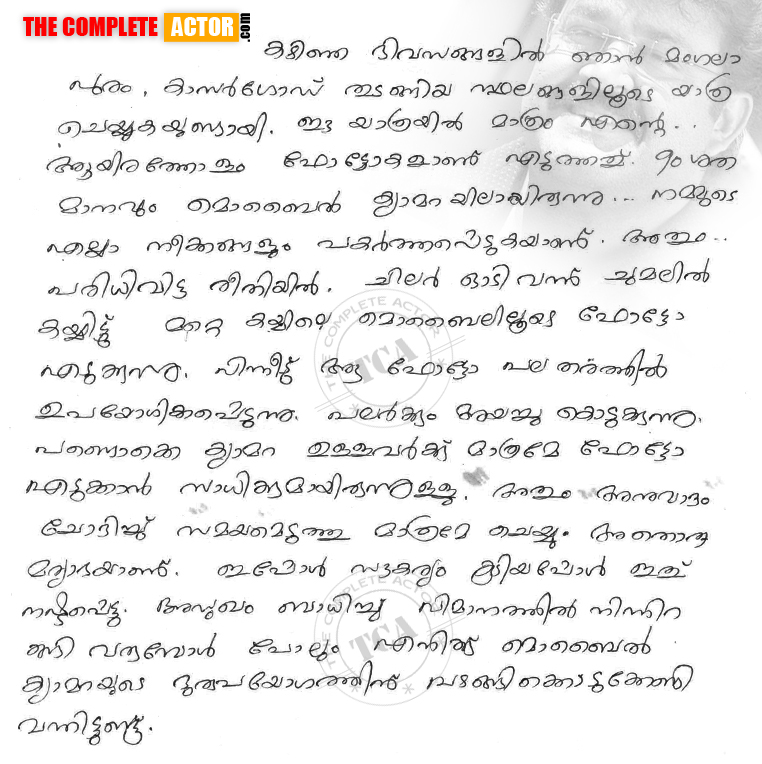 THE COMPLETE ACTOR.com
കഴിഞ്ഞ ദിവസങ്ങളിൽ ഞാൻ മംഗലാ
പുരം, കാസർഗോഡ് തുടങ്ങിയ സ്ഥലങ്ങളിലൂടെ യാത്ര
ചെയ്യുകയുണ്ടായി. ഈ യാത്രയിൽ മാത്രം എന്റെ..
ആയിരത്തോളം ഫോട്ടോകളാണ് എടുത്തത്. ൯൦ ശത
മാനവും മൊബൈൽ ക്യാമറയിലായിരുന്നു... നമ്മുടെ
എല്ലാ നീക്കങ്ങളും പകർത്തപ്പെടുകയാണ്. അതും..
പരിധിവിട്ട രീതിയിൽ. ചിലർ ഓടി വന്ന് ചുമലിൽ
കയ്യിട്ട് മറ്റെ കയ്യിലെ മൊബൈലിലൂടെ ഫോട്ടോ
എടുക്കുന്നു. പിന്നീട് ആ ഫോട്ടോ പല തരത്തിൽ
ഉപയോഗിക്കപ്പെടുന്നു. പലർക്കും അയച്ചു കൊടുക്കുന്നു.
പണ്ടൊക്കെ ക്യാമറ ഉള്ളവർക്ക് മാത്രമേ ഫോട്ടോ
എടുക്കാൻ സാധിക്കുമായിരുന്നുള്ളു. അതും അനുവാദം
ചോദിച്ച് സമയമെടുത്തു മാത്രമേ ചെയ്യും. അതൊരു
മര്യാദയാണ്. ഇപ്പോൾ സൗകര്യം കൂടിയപ്പോൾ ഇത്
നഷ്ടപ്പെട്ടു. അസുഖം ബാധിച്ച് വിമാനത്തിൽ നിന്നിറ
ങ്ങി വരുമ്പോൾ പോലും എനിക്ക് മൊബൈൽ
ക്യാമറയുടെ ദുരുപയോഗത്തിന് വഴങ്ങിക്കൊടുക്കേണ്ടി
വന്നിട്ടുണ്ട്.
THE COMPLETE ACTOR
TCA
THE COMPLETE ACTOR
TCA